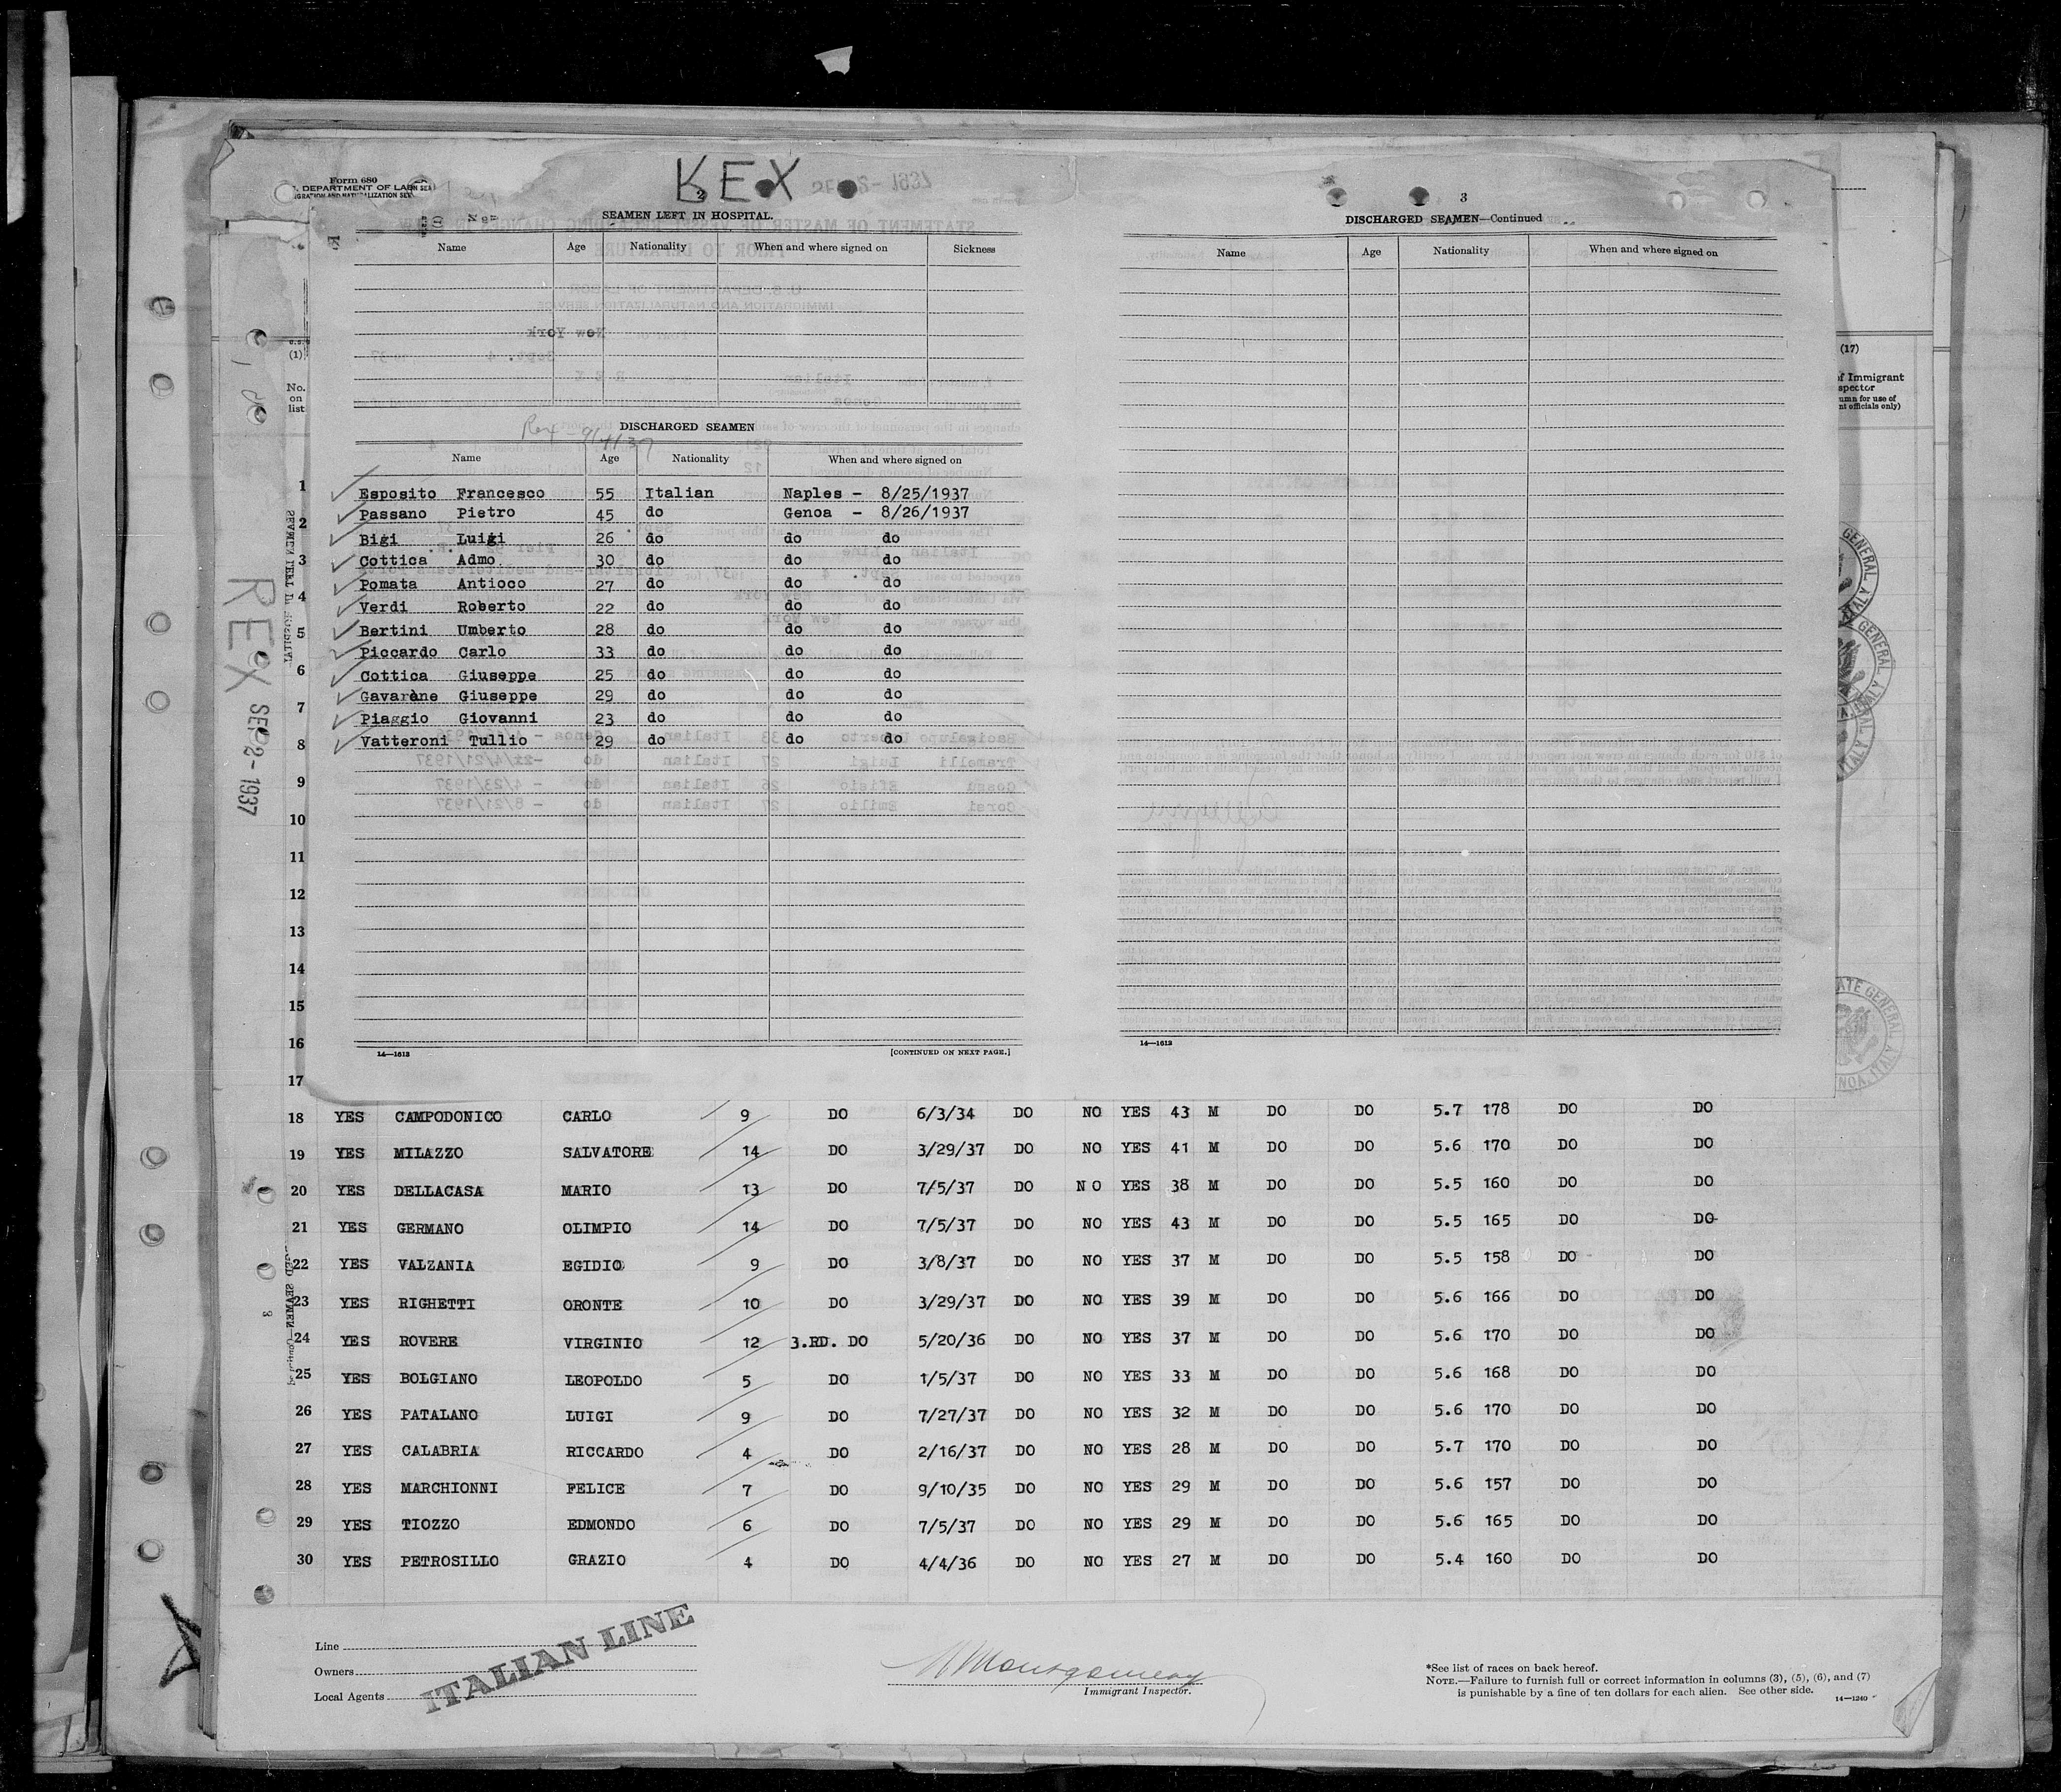 Form 680
REX
SEAMEN LEFT IN HOSPITAL.
Name Age Nationality When and where signed on Sickness
Rex - 9/4/37
DISCHARGED SEAMEN
Name Age Nationality When and where signed on
Esposito Francesco 55 Italian Naples - 8/25/1937
Passano Pietro 45 do Genoa - 8/26/1937
Bigi Luigi 26 do do do
Cottica Admo 30 do do do
Pomata Antioco 27 do do do
Verdi Roberto 22 do do do
Bertini Umberto 28 do do do
Piccardo Carlo 33 do do do
Cottica Giuseppe 25 do do do
Gavarène Giuseppe 29 do do do
Piaggio Giovanni 23 do do do
Vatteroni Tullio 29 do do do
14—1613 [CONTINUED ON NEXT PAGE.]
3
DISCHARGED SEAMEN—Continued
Name Age Nationality When and where signed on
14—1613
(1)
No.
on
list
1
2
3
4
5
6
7
8
9
10
11
12
13
14
15
16
17
REX SEP 2-1937
(17)
of Immigrant
18 YES CAMPODONICO CARLO 9 DO 6/3/34 DO NO YES 43 M DO DO 5.7 178 DO DO
19 YES MILAZZO SALVATORE 14 DO 3/29/37 DO NO YES 41 M DO DO 5.6 170 DO DO
20 YES DELLACASA MARIO 13 DO 7/5/37 DO NO YES 38 M DO DO 5.5 160 DO DO
21 YES GERMANO OLIMPIO 14 DO 7/5/37 DO NO YES 43 M DO DO 5.5 165 DO DO
22 YES VALZANIA EGIDIO 9 DO 3/8/37 DO NO YES 37 M DO DO 5.5 158 DO DO
23 YES RIGHETTI ORONTE 10 DO 3/29/37 DO NO YES 39 M DO DO 5.6 166 DO DO
24 YES ROVERE VIRGINIO 12 3.RD. DO 5/20/36 DO NO YES 37 M DO DO 5.6 170 DO DO
25 YES BOLGIANO LEOPOLDO 5 DO 1/5/37 DO NO YES 33 M DO DO 5.6 168 DO DO
26 YES PATALANO LUIGI 9 DO 7/27/37 DO NO YES 32 M DO DO 5.6 170 DO DO
27 YES CALABRIA RICCARDO 4 DO 2/16/37 DO NO YES 28 M DO DO 5.7 170 DO DO
28 YES MARCHIONNI FELICE 7 DO 9/10/35 DO NO YES 29 M DO DO 5.6 157 DO DO
29 YES TIOZZO EDMONDO 6 DO 7/5/37 DO NO YES 29 M DO DO 5.6 165 DO DO
30 YES PETROSILLO GRAZIO 4 DO 4/4/36 DO NO YES 27 M DO DO 5.4 160 DO DO
Line
Owners
Local Agents
ITALIAN LINE
Montgomery
Immigrant Inspector.
*See list of races on back hereof.
NOTE.—Failure to furnish full or correct information in columns (3), (5), (6), and (7)
is punishable by a fine of ten dollars for each alien. See other side.
14—1240